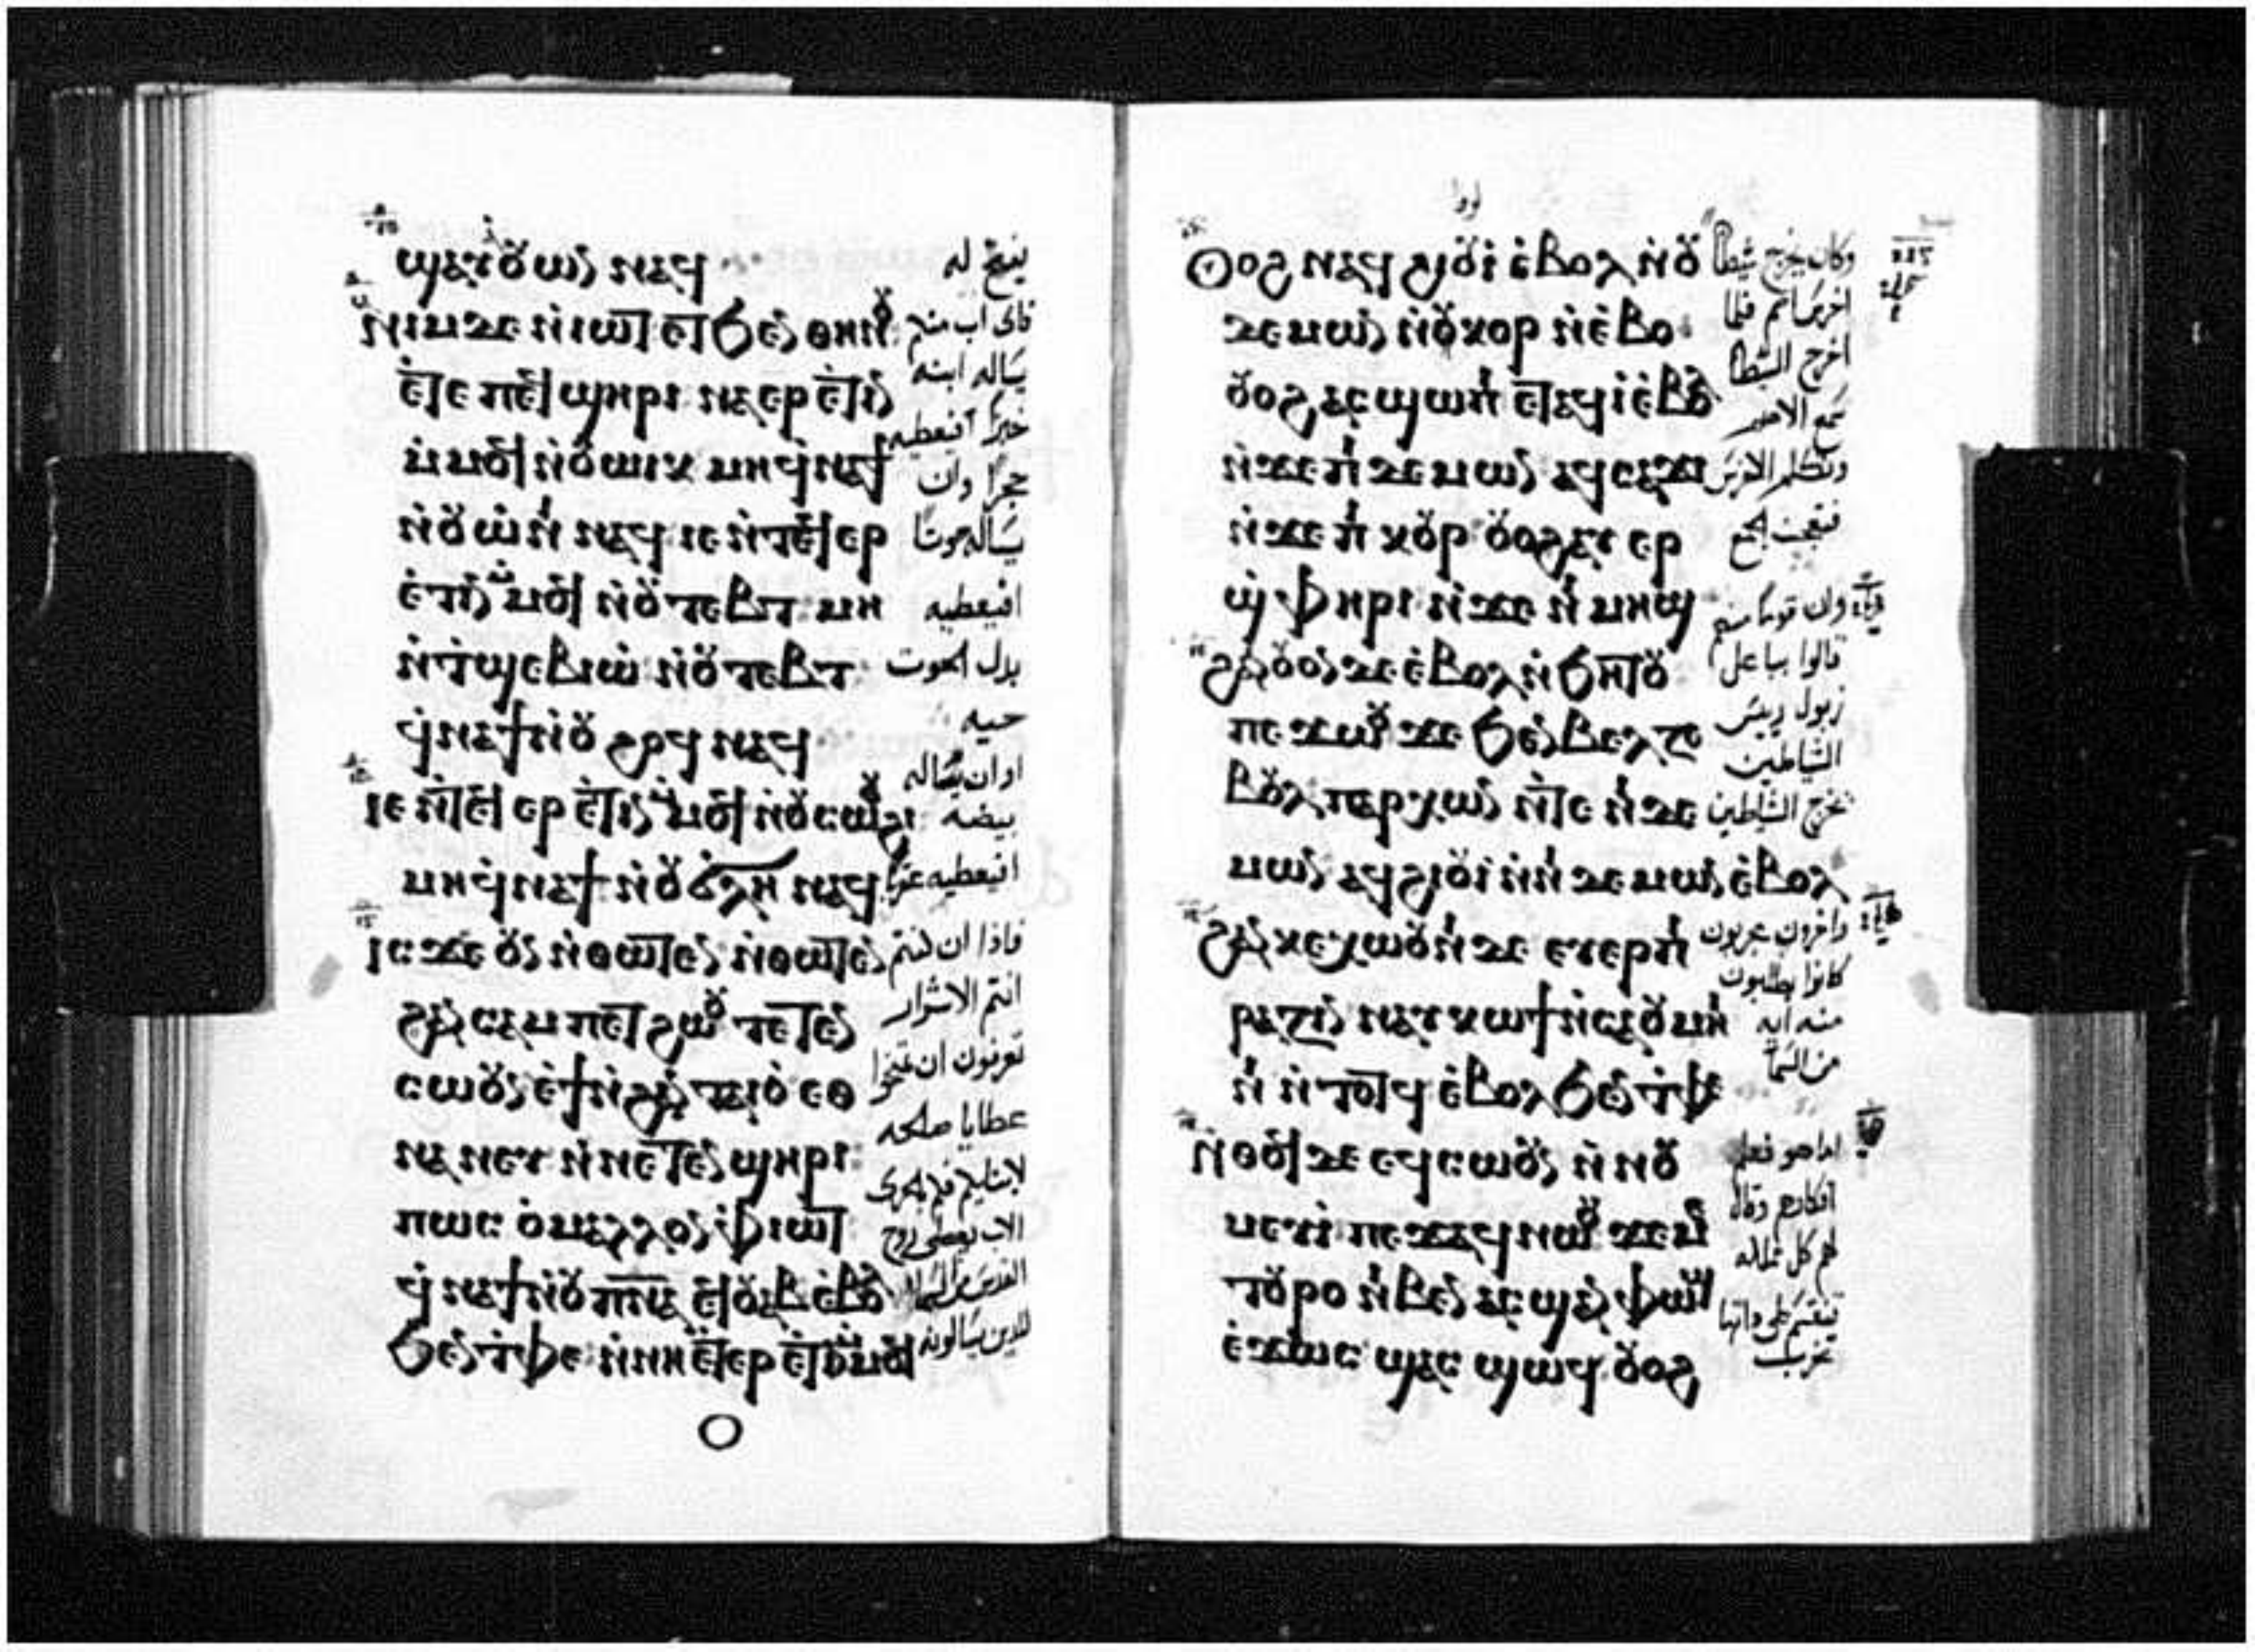 ϣⲁⲩⲟⲩⲱⲛ ⲛⲁϥ
ⲛⲓⲙ ⲇⲉ ⲛⲓⲱⲧ ⲉⲧϧⲉⲛ ⲑⲏⲛⲟⲩ
ⲉⲧⲉ ⲡⲉϥϣⲏⲣⲓ ⲛⲁⲉⲣⲉⲧⲓⲛ
ⲙ̀ⲙⲟϥ ⲛ̀ⲟⲩⲱⲓⲕ ⲙⲏ ϥ̀ⲛⲁϯ
ⲛ̀ⲟⲩⲱ̀ⲛⲓ ⲛⲁϥ ⲓⲉ ⲛ̀ⲧⲉϥⲉⲣ
ⲉ̀ⲧⲓⲛ ⲙ̀ⲙⲟϥ ⲛ̀ⲟⲩⲧⲉⲃⲧ ⲙⲏ
ⲛ̀ⲧ̀ϣⲉⲃⲓⲱ̀ ⲛ̀ⲟⲩⲧⲉⲃⲧ
ϥ̀ⲛⲁϯ ⲛ̀ⲟⲩϩⲟϥ ⲛⲁϥ
ⲓⲉ ⲛ̀ⲧⲉϥⲉⲣⲉ̀ⲧⲓⲛ ⲙ̀ⲙⲟϥ ⲛ̀ⲟⲩⲥⲱⲟⲩϩⲓ
ⲙⲏ ϥ̀ⲛⲁϯ ⲛ̀ⲟⲩϭ̀ⲗⲏ ⲛⲁϥ
ⲓⲥϫⲉ ⲟⲩⲛ ⲛ̀ⲑⲱⲧⲉⲛ ⲛ̀ⲑⲱⲧⲉⲛ
ϩⲁⲛⲥⲁⲙⲡⲉⲧϩⲱⲟⲩ ⲧⲉⲧⲉⲛ
ⲥⲱⲟⲩⲛ ⲉ̀ϯ ⲛ̀ϩⲁⲛⲧⲁⲓⲟ̀ ⲉⲑ
ⲛⲁⲛⲉⲩ ⲛ̀ⲛⲉⲧⲉⲛϣⲏⲣⲓ
ⲡⲱⲥ ⲟ̀ⲙⲁⲗⲗⲟⲛ ⲫ̀ⲓⲱⲧ
ϥ̀ⲛⲁϯ ⲛ̀ⲟⲩⲡ̅ⲛ̅ⲁ̅ ⲉϥⲟⲩⲁⲃ ⲉ̀ⲃⲟⲗ
ϧⲉⲛ ⲧ̀ⲫⲉ ⲛ̀ⲛⲏ ⲉⲧⲉⲣⲉ̀ⲧⲓⲛ ⲙ̀ⲙⲟϥ
يفتح له
فاى اب منكم
يساله ابنه
خبزًا افيعطيه
حجرًا وان
يساله حوتا
افيعطيه
بدل الحوت
حيه
او ان يساله
بيضة
افيعطيه عقربا
فاذا ان كنتم
انتم الاشرار
تعرفون ان تمنحوا
عطايا صالحه
لابنايكم فكم بالحرى
الاب يعطى روح
القدس من السما
للذين يسالونه
لوقا
ⲟⲩⲟϩ ⲛⲁϥϩⲓⲟⲩⲓ̀ ⲉ̀ⲃⲟⲗ ⲛ̀ⲟⲩ
ⲇⲉⲙⲱⲛ ⲛ̀ⲟⲩⲕⲟⲣ ⲛ̀ⲉ̀ⲃⲟ
ⲟⲩⲟϩ ⲁⲥϣⲱⲡⲓ ⲉⲧⲁϥⲓ̀ ⲉ̀ⲃⲟⲗ
ⲛ̀ϫⲉ ⲡⲓⲇⲉⲙⲱⲛ ⲁϥⲥⲁϫⲓ
ⲛ̀ϫⲉ ⲡⲓⲕⲟⲩⲣ ⲟⲩⲟϩ ⲁⲩⲉⲣ
ϣ̀ⲫⲏⲣⲓ ⲛ̀ϫⲉ ⲛⲓⲙⲏϣ
ϩⲁⲛⲟⲩⲟⲛ ⲇⲉ ⲉ̀ⲃⲟⲗ ⲛ̀ϧⲏⲧⲟⲩ
ⲡⲉϫⲱⲟⲩ ϫⲉ ϧⲉⲛ ⲃⲉⲗⲍⲉ
ⲃⲟⲩⲗ ⲡⲉⲣⲭⲱⲛ ⲛ̀ⲧⲉ ⲛⲓⲇⲉ
ⲙⲱⲛ ⲁϥϩⲓⲟⲩⲓ̀ ⲛ̀ⲛⲓⲇⲉⲙⲱⲛ ⲉ̀ⲃⲟⲗ
ϩⲁⲛⲕⲉⲭⲱⲟⲩⲛⲓ ⲇⲉ ⲉⲩⲉⲣⲡⲓ
ⲣⲁⲍⲓⲛ ⲛⲁⲩⲕⲱϯ ⲛ̀ⲥⲁⲟⲩⲙⲏⲓ
ⲛⲓ ⲛ̀ⲧⲟⲧϥ ⲉ̀ⲃⲟⲗ ϧⲉⲛ ⲧ̀ⲫⲉ
ⲛ̀ⲑⲟϥ ⲇⲉ ⲉϥⲥⲱⲟⲩⲛ ⲛ̀ⲛⲟⲩ
ⲙⲉⲩⲓ̀ ⲡⲉϫⲁϥ ⲛⲱⲟⲩ ϫⲉ ⲙⲉ
ⲧⲟⲩⲣⲟ ⲛⲓⲃⲉⲛ ⲁⲥϣⲁⲛⲫⲱϣ
ⲉ̀ϫⲱⲥ ϣⲁⲥϣⲱϥ ⲟⲩⲟϩ
وكان يخرج شيطانًا
اخرس اصم فلما
اخرج الشيطان
سمع الاصم
وتكلم الاخرس
فتعجب الجمع
وان قوما منهم
قالوا بباعل
زبول رييس
الشياطين
يخرج الشياطين
واخرون يجربون
كانوا يطلبون
منه ايه
من السما
اما هو فعلم
افكارهم وقال
لهم كل مملكه
تنقسم على ذاتها
تخرب